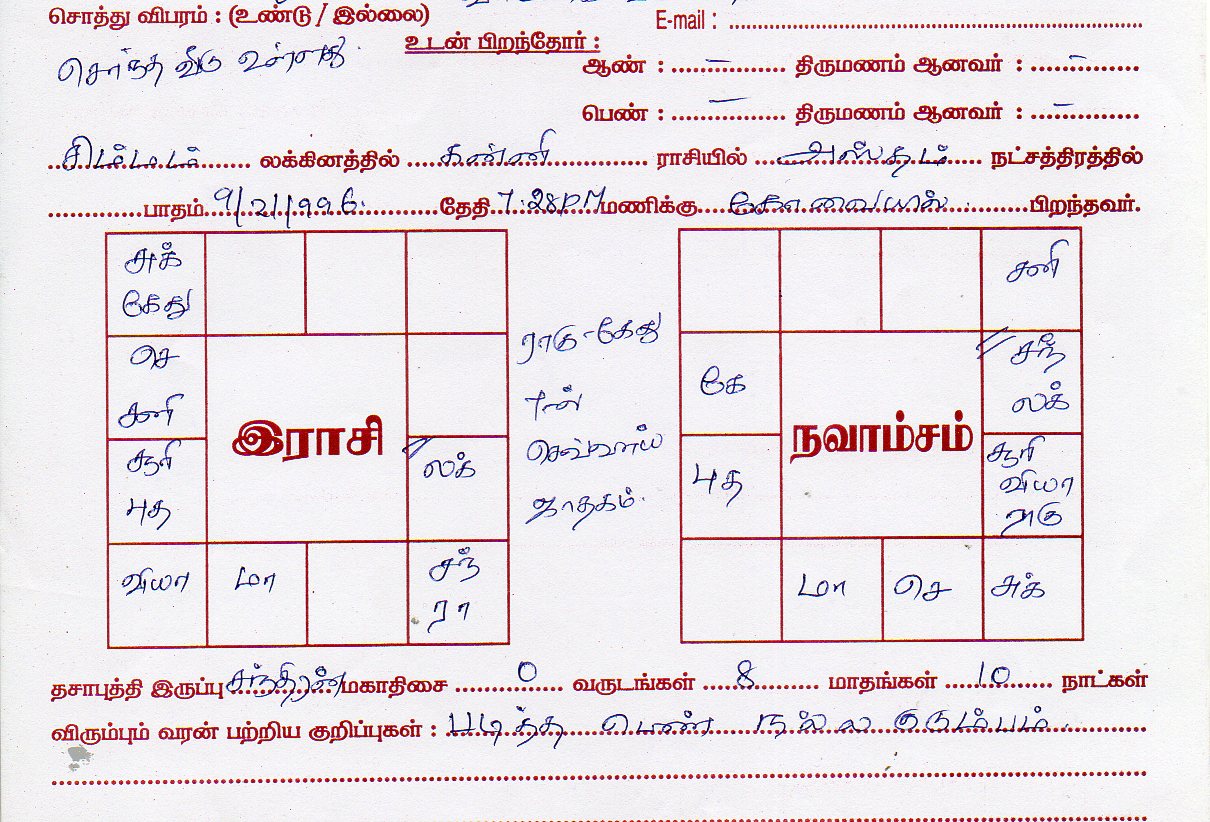 சொத்து விபரம் : (உண்டு / இல்லை)
E-mail : ........................
சொந்த வீடு உள்ளது
உடன் பிறந்தோர் :
ஆண் : ......–........ திருமணம் ஆனவர் : .....–.........
பெண் : ......–........ திருமணம் ஆனவர் : .....–.........
சிம்மம் லக்கினத்தில் கன்னி ராசியில் அஸ்தம் நட்சத்திரத்தில்
..............பாதம் 9/2/1996. தேதி 7:28PM மணிக்கு கோவையில் பிறந்தவர்.
சுக்
கேது
செ
சனி
சூரி
புத
இராசி
லக்
வியா
மா
சந்
ரா
ராகு-கேது
செவ்வாய்
ஜாதகம்.
சனி
கே
சந்
லக்
புத
நவாம்சம்
சூரி
வியா
ராகு
மா
செ
சுக்
தசாபுத்தி இருப்பு சந்திரன் மகாதிசை 0 வருடங்கள் 8 மாதங்கள் 10 நாட்கள்
விரும்பும் வரன் பற்றிய குறிப்புகள் : படித்த பெண் நல்ல குடும்பம்.